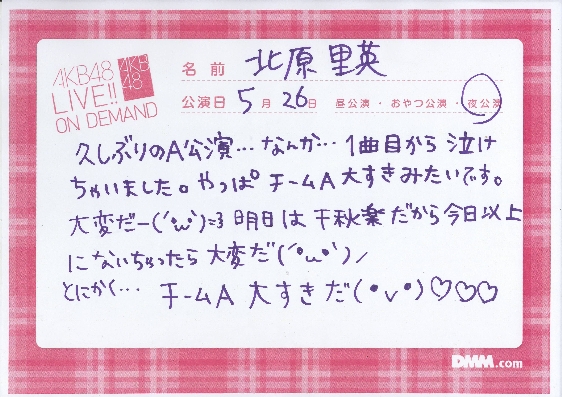 AKB48
LIVE!!
ON DEMAND
AKB
48
名前 北原里英
公演日 5月26日 昼公演・おやつ公演・夜公演
久しぶりのA公演…なんか…1曲目から泣け
ちゃいました。やっぱチームA大すきみたいです。
大変だー(´・ω・`)=3 明日は千秋楽だから今日以上
にないちゃったら大変だ(´・ω・`)ノ
とにかく… チームA 大すきだ(・v・)♡♡♡
DMM.com